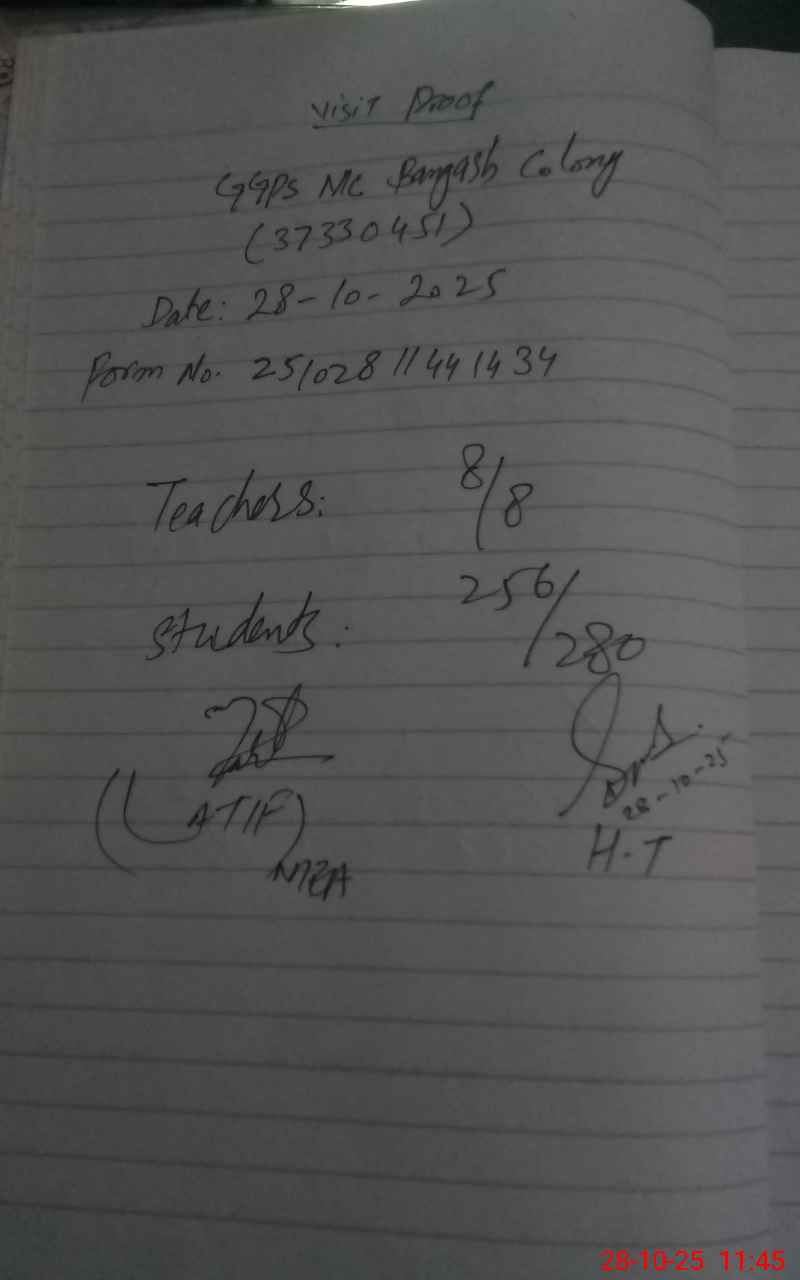 Visit Proof
GGPS MC Bangash Colony
(37330451)
Date: 28-10-2025
Form No. 25102811441434
Teachers: 8/8
Students: 256/280
28-10-25
(LATIF)
MEA
H.T
28-10-25 11:45